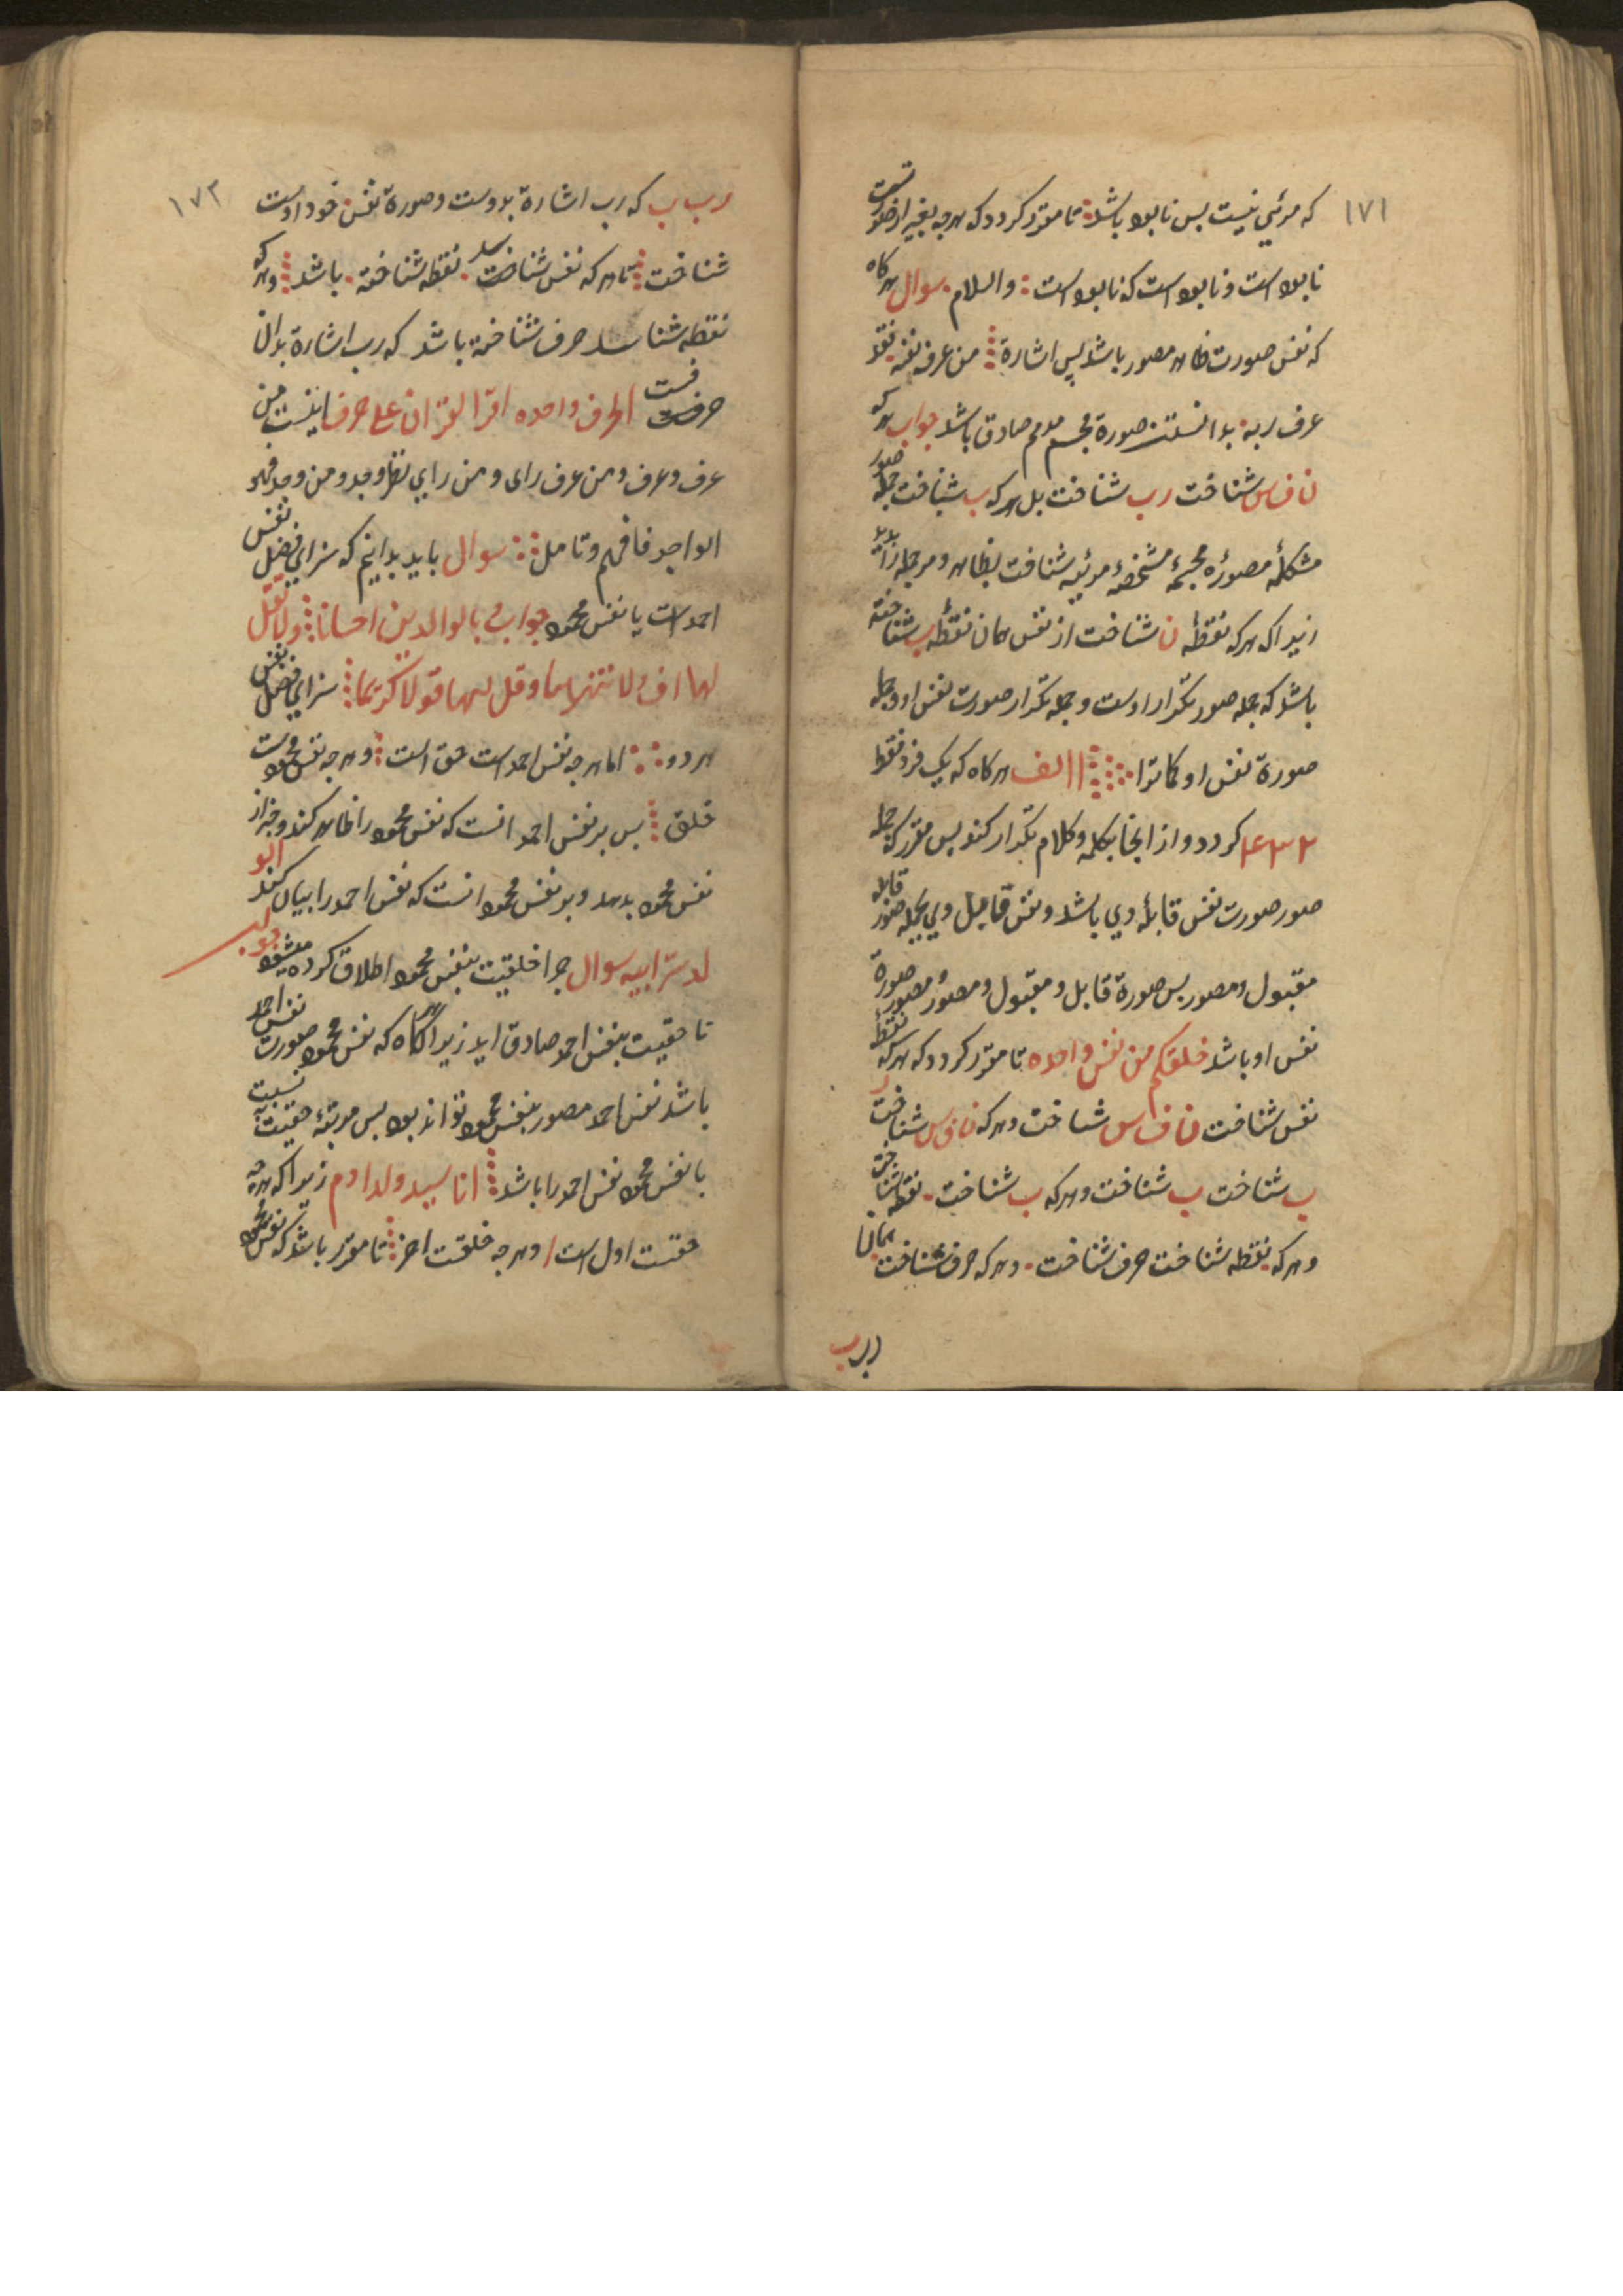 ۱۷۱
که مرئي نیست بس نابود باشد تا مقرر کردد که هرجه بغیر از صورتست
نابود است و نابود است که نابود است والسلام سوال هرکاه
که نفس صورت ظاهر مصور باشد پس اشارة من عرف نفسه فقد
عرف ربه بدانستن صورة مجسم صادق باشد جواب هرکه
ن ف س شناخت رب شناخت بل هرکه ب شناخت جمله صور
مشکلهٔ مصورهٔ مجسمهٔ مشخصهٔ مرئیه شناخت بظاهر و مرجمله را
زیراکه هرکه نقطهٔ ن شناخت از نفس همان نقطهٔ ب شناخته
باشد که جمله صور تکرار اوست و جمله تکرار صورت نفس او و جمله
صورة نفس او کاترا ا الف هرکاه که یک فرد نقطه
۲ ۳ ۴ کردد و از انجا بکلمه و کلام تکرار کند بس مقرر که جمله
صور صورت نفس قابلهٔ وي باشد و نفس قابل وي بجمله صور قابله
مقبول و مصور بس صورة قابل و مقبول و مصور و مصور صورة
نفس او باشد خلقکم من نفس واحده تا مقرر کردد که هرکه نقطهٔ
نفس شناخت ن ف س شناخت و هرکه ن ف س شناخت ر
ب شناخت ب شناخت و هرکه ب شناخت نقطه شناخت
و هرکه نقطه شناخت حرف شناخت و هرکه حرف شناخت همان
ر ب ب
۱۷۲
رب ب که رب اشارة بدوست و صورة نفس خود اوست
شناخت تا هرکه نفس شناخت نقطه شناخته باشد و هرکه
نقطه شناسد حرف شناخته باشد که رب اشارة بدان
حرفست الحرف واحده اقرا القران علی حرف اینست من
عرف و عرف و من عرف رای و من راي نظر و جد و من وجد فهو
الواجد فافهم و تامل سوال باید بدانیم که سزاي فضل نفس
احمد است یا نفس محمود جواب بالوالدین احسانا ولا تقل
لهما اف ولا تنهرهما و قل لهما قولا کریما سزاي فضل نفس
هر دو اما هرجه نفس احمد است حق است و هرجه نفس محمودست
خلق بس بر نفس احمد انست که نفس محمود را ظاهر کند و خبر از
نفس محمود بدهد و بر نفس محمود انست که نفس احمد را بیان کند الو
لد سر ابیه سوال جرا خلقیت بنفس محمود اطلاق کرده میشود جواب
تا حقیت بنفس احمد صادق اید زیرا هرکاه که نفس محمود صورت نفس احمد
باشد نفس احمد مصور بنفس محمود تواند بود بس مرتبهٔ حقیت به نسبت
با نفس محمود نفس احمد را باشد انا سید ولد ادم زیراکه هرجه
حقیت اول است و هرجه خلقت اخر تا مقرر باشد که نفس محمود